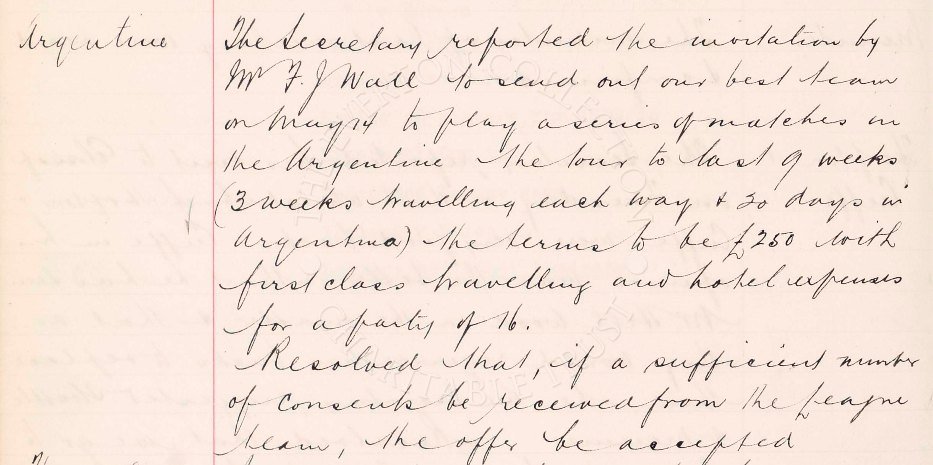 Argentine
The Secretary reported the invitation by
Mr F. J Wall to send out our best team
on May 14 to play a series of matches in
the Argentine the tour to last 9 weeks
(3 weeks travelling each way & 20 days in
Argentina) the terms to be £250 with
first class travelling and hotel expenses
for a party of 16.
Resolved that, if a sufficient number
of consents be received from the League
team, the offer be accepted